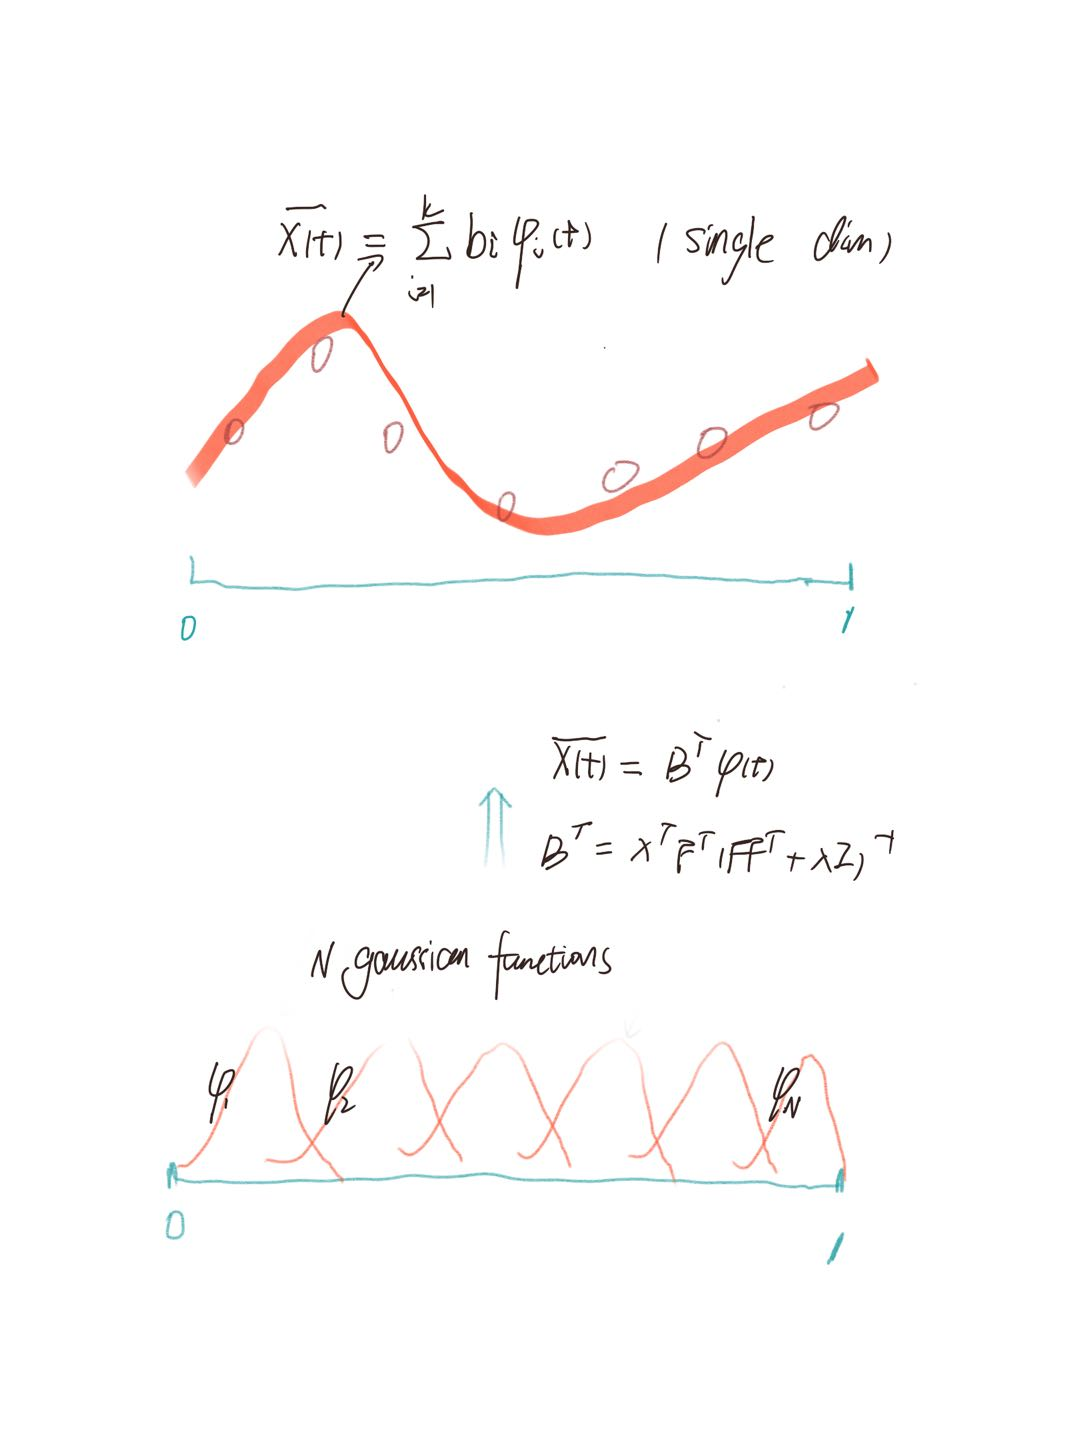 X̅(t) = Σ_{i=1}^{k} bᵢ φᵢ(t) (single dim)
0 1
X̅(t) = Bᵀ φ(t)
Bᵀ = XᵀFᵀ(FFᵀ + λI)⁻¹
N gaussian functions
φ₁ φ₂ φ_N
0 1